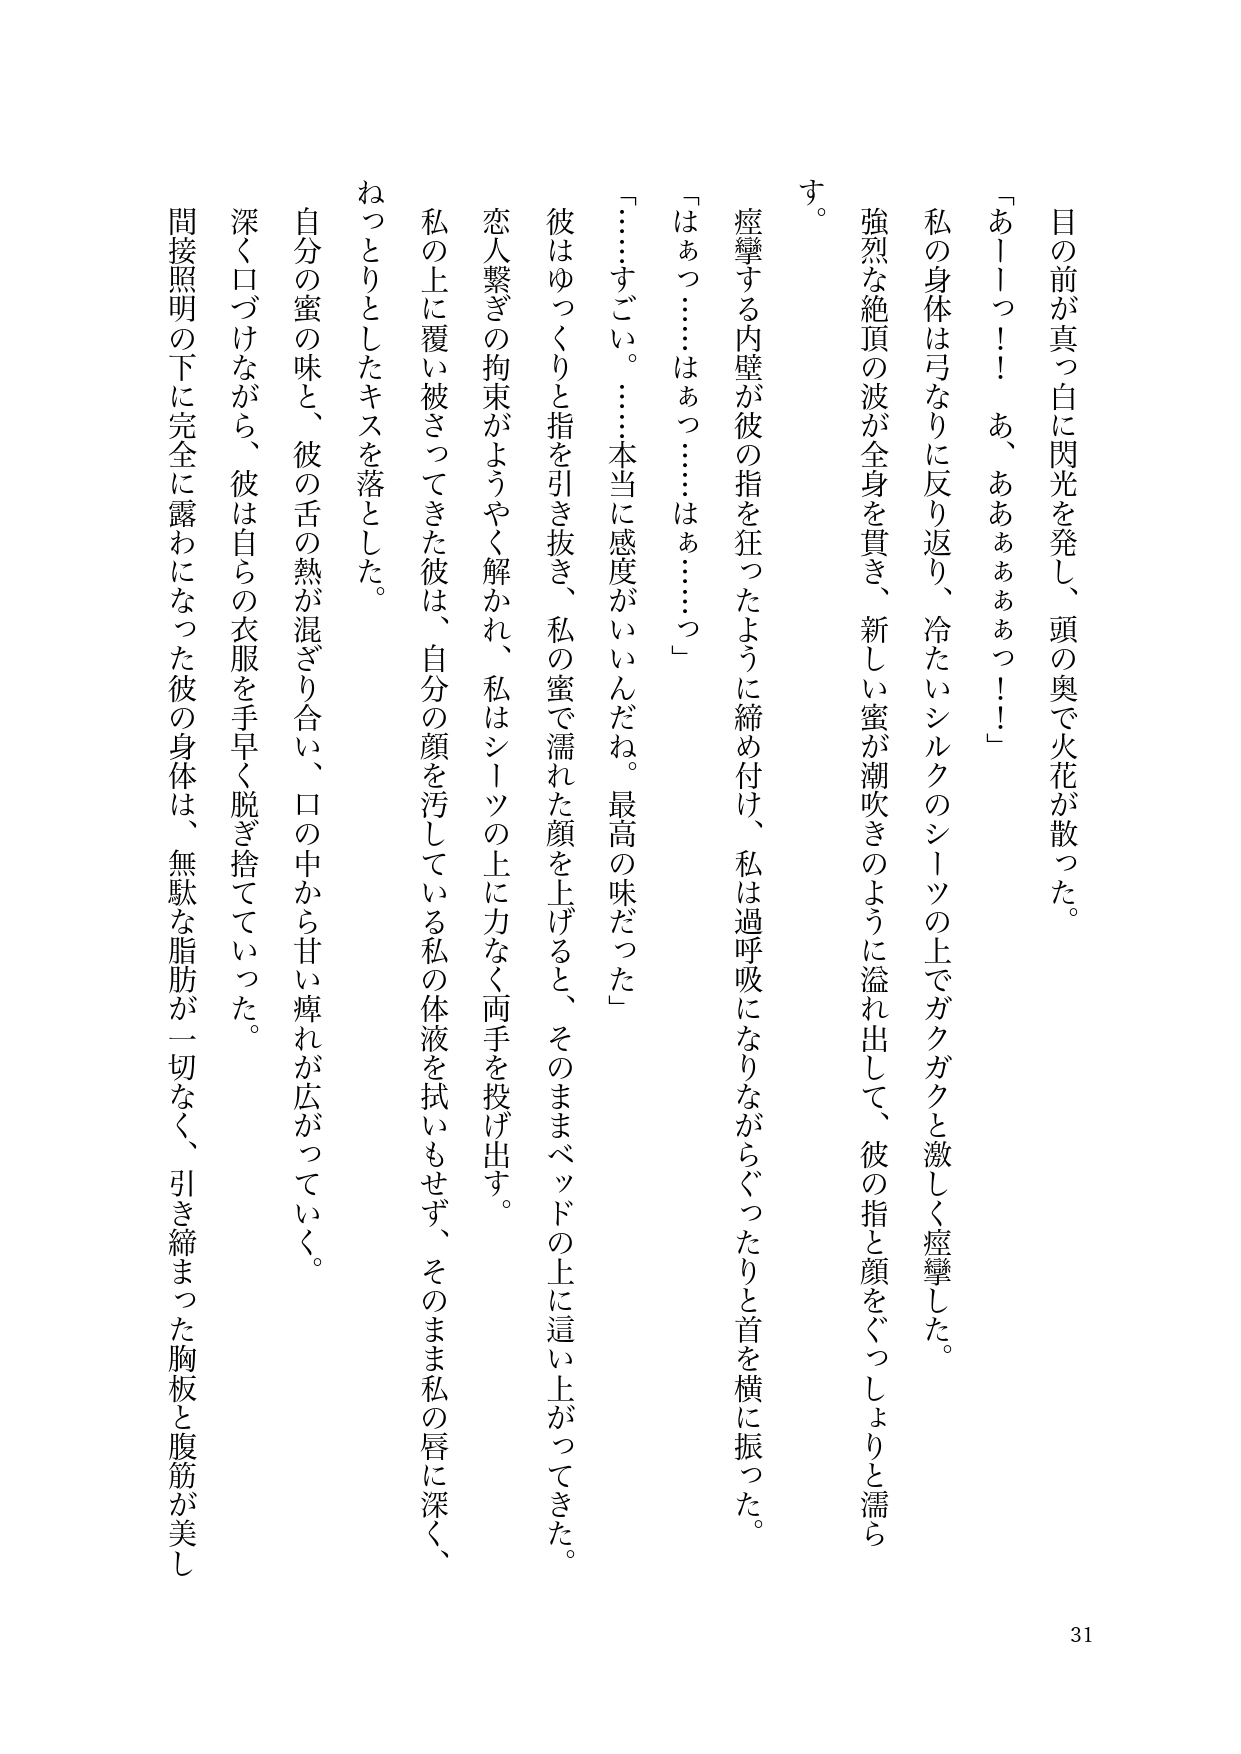 目の前が真っ白に閃光を発し、頭の奥で火花が散った。
「あーーっ！！　あ、あぁぁぁぁっ！！」
私の身体は弓なりに反り返り、冷たいシルクのシーツの上でガクガクと激しく痙攣した。
強烈な絶頂の波が全身を貫き、新しい蜜が潮吹きのように溢れ出して、彼の指と顔をぐっしょりと濡ら
す。
痙攣する内壁が彼の指を狂ったように締め付け、私は過呼吸になりながらぐったりと首を横に振った。
「はあっ……はあっ……はぁ……っ」
「……すごい。……本当に感度がいいんだね。最高の味だった」
彼はゆっくりと指を引き抜き、私の蜜で濡れた顔を上げると、そのままベッドの上に這い上がってきた。
恋人繋ぎの拘束がようやく解かれ、私はシーツの上に力なく両手を投げ出す。
私の上に覆い被さってきた彼は、自分の顔を汚している私の体液を拭いもせず、そのまま私の唇に深く、
ねっとりとしたキスを落とした。
自分の蜜の味と、彼の舌の熱が混ざり合い、口の中から甘い痺れが広がっていく。
深く口づけながら、彼は自らの衣服を手早く脱ぎ捨てていった。
間接照明の下に完全に露わになった彼の身体は、無駄な脂肪が一切なく、引き締まった胸板と腹筋が美し
31